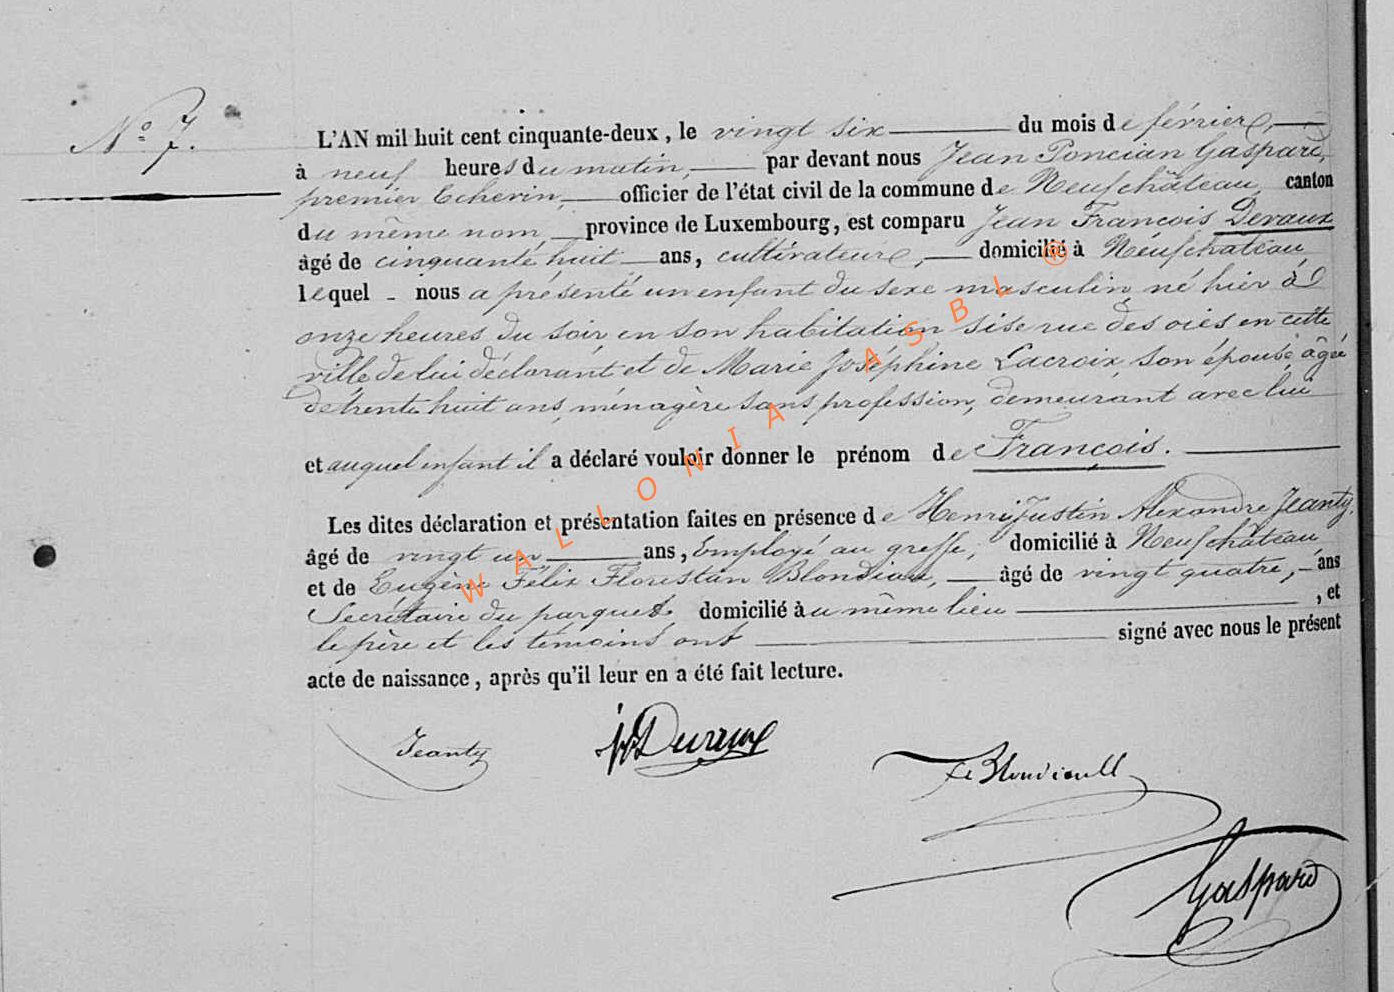 N° 7.
L'AN mil huit cent cinquante-deux, le vingt six du mois de février,
à neuf heures du matin, par devant nous Jean Poncian Gaspard,
premier Echevin, officier de l'état civil de la commune de Neufchâteau, canton
du même nom, province de Luxembourg, est comparu Jean François Devaux
âgé de cinquante huit ans, cultivateur, domicilié à Neufchateau,
lequel nous a présenté un enfant du sexe masculin né hier à
onze heures du soir en son habitation sise rue des oies en cette
ville de lui déclarant et de Marie Joséphine Lacroix son épouse âgée
de trente huit ans, ménagère sans profession, demeurant avec lui
et auquel enfant il a déclaré vouloir donner le prénom de François.
Les dites déclaration et présentation faites en présence de Henri Justin Alexandre Jeanty,
âgé de vingt un ans, Employé au greffe, domicilié à Neufchâteau
et de Eugène Félix Florestan Blondiau, âgé de vingt quatre, ans
Secrétaire du parquet, domicilié au même lieu, et
le père et les témoins ont signé avec nous le présent
acte de naissance, après qu'il leur en a été fait lecture.
Jeanty
Devaux
Gaspard
WALLONIA ASBL ®